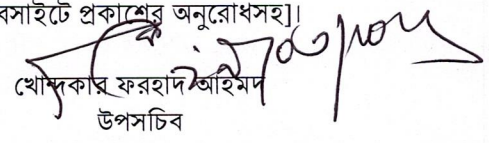 বসাইটে প্রকাশের অনুরোধসহ]।
খোন্দকার ফরহাদ আহমদ
উপসচিব